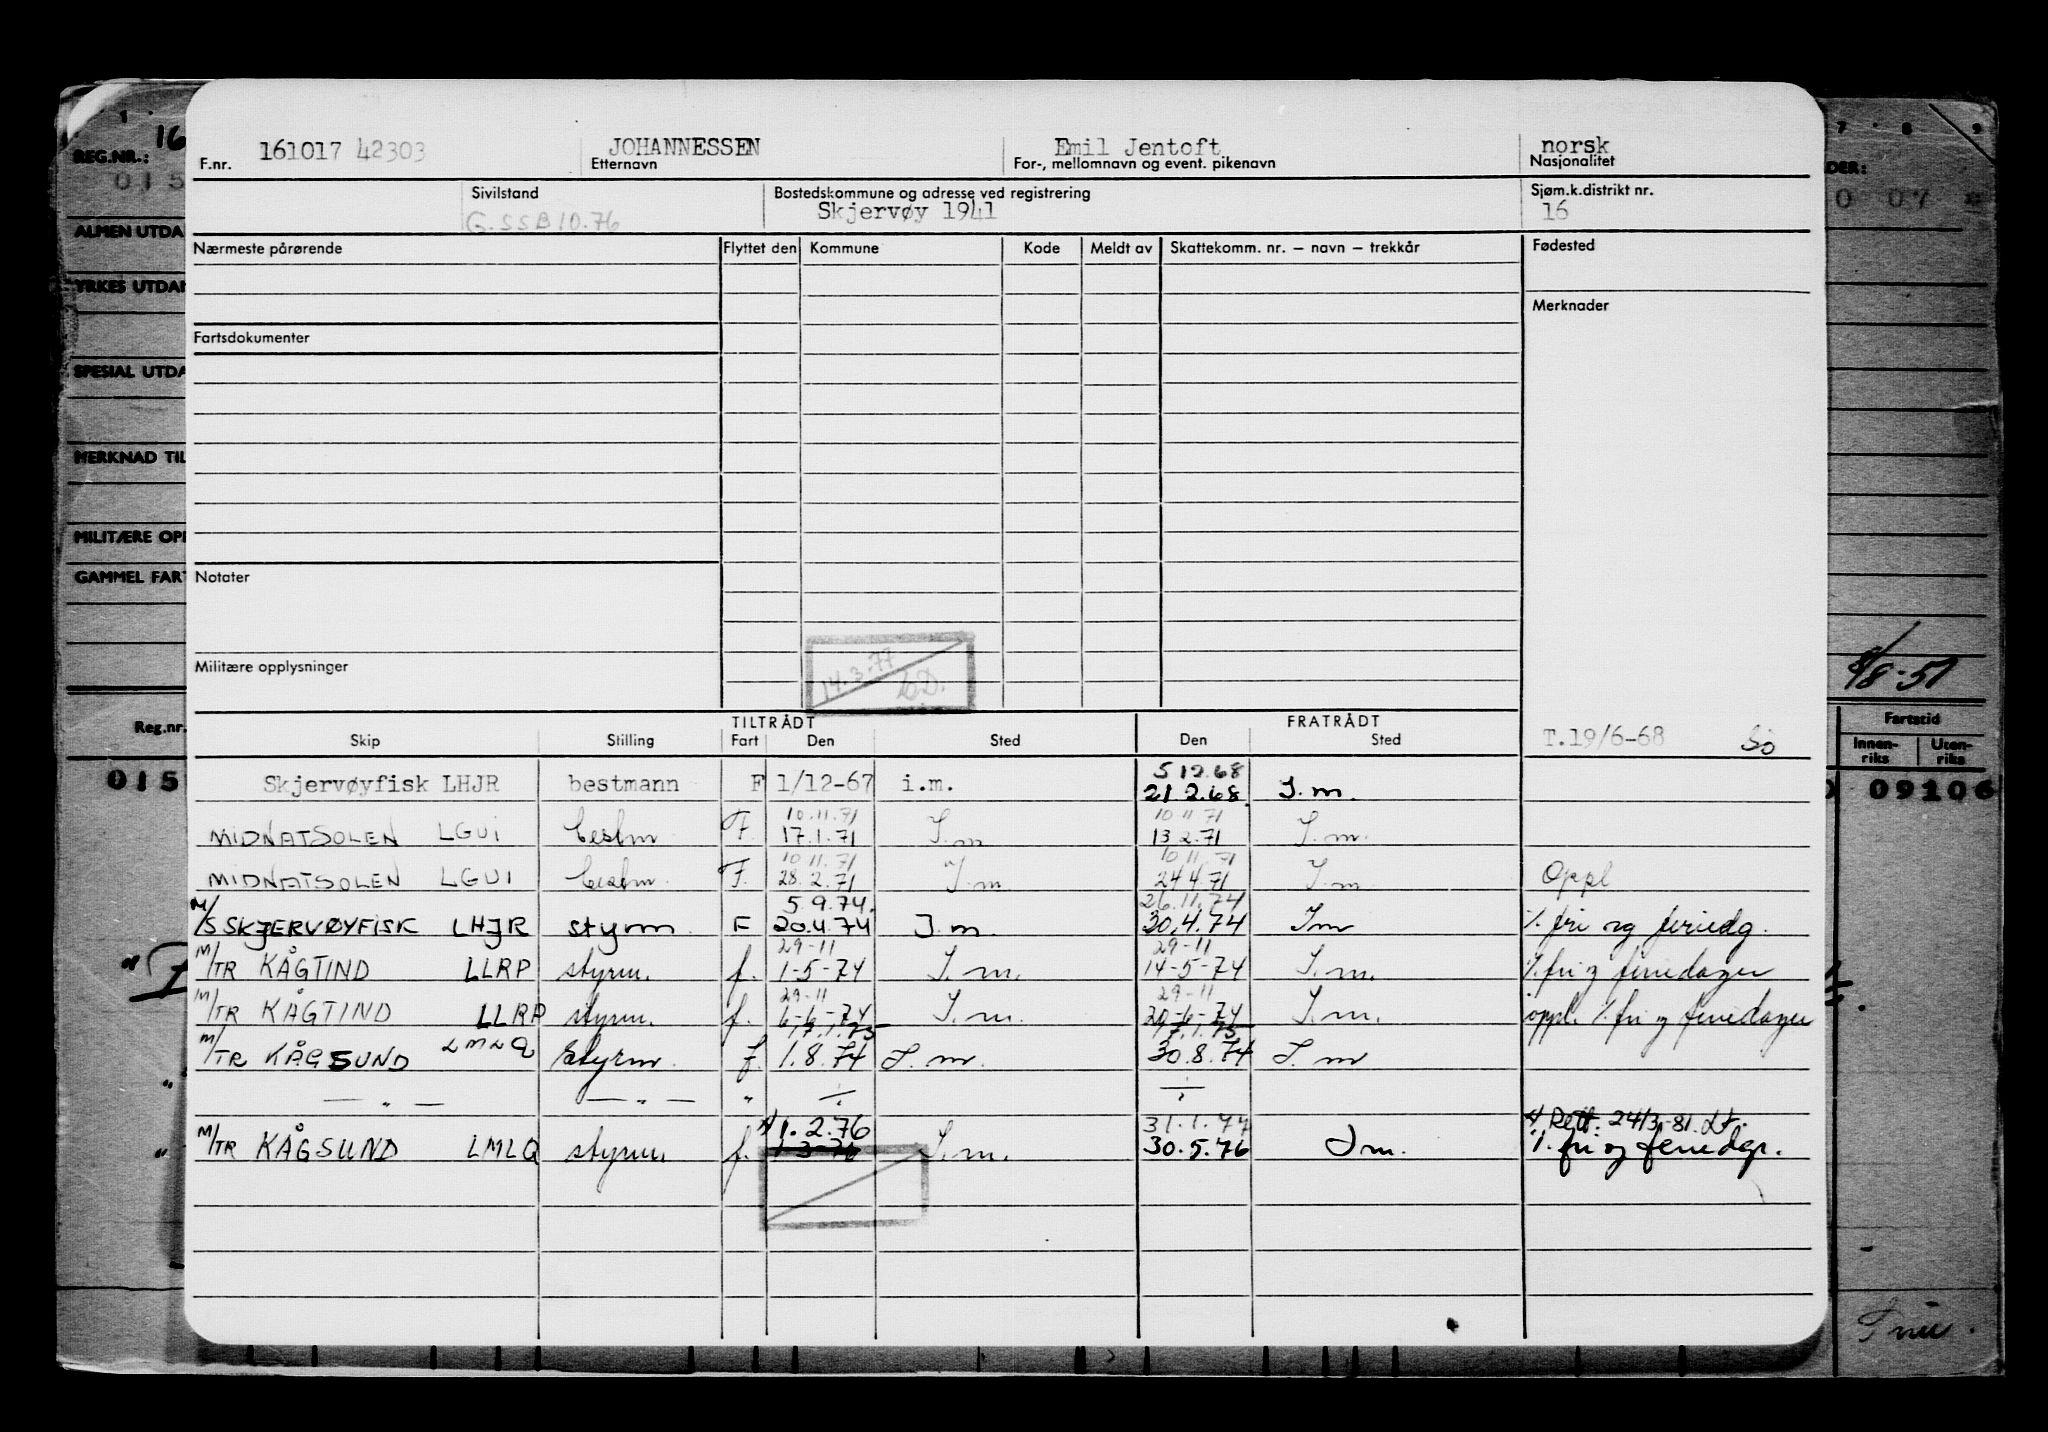 161017 42303 JOHANNESSEN Emil Jentoft norsk
F.nr. Etternavn For-, mellomnavn og event. pikenavn Nasjonalitet
REG.NR.: 16
015
Sivilstand Bostedskommune og adresse ved registrering Sjøm.k.distrikt nr.
G.SSB10.76 Skjervøy 1941 16
Nærmeste pårørende Flyttet den Kommune Kode Meldt av Skattekomm. nr. – navn – trekkår Fødested
Merknader
Fartsdokumenter
Notater
Militære opplysninger
14.3-77
TILTRÅDT FRATRÅDT
Skip Stilling Fart Den Sted Den Sted T.19/6-68
5 12.68
Skjervøyfisk LHJR bestmann F 1/12-67 i.m. 21 2.68. I.m.
10.11.71 10 11 71
MIDNATSOLEN LGUI bestm F. 17.1.71 I.m 13 2.71 I.m.
10 11.71 10 11.71
MIDNATSOLEN LGUI bestm. F. 28.2.71 I.m. 24 4 71 I.m Oppl
5.9.74. 26.11.74
M/S SKJERVØYFISK LHJR styrm F 20.4.74 I.m. 30.4.74 Im ./. fri og feriedg.
29-11 29-11
M/TR KÅGTIND LLRP styrm. f. 1-5-74 I.m. 14-5-74 I.m. ./. fri og feriedager
29-11 29-11
M/TR KÅGTIND LLRP styrm. f. 6-6-74 I.m. 20-6-74 I.m. oppl. ./. fri og feriedager
17.1.75 17.1.75
M/TR KÅGSUND LMLQ styrm. f. 1.8.74 I.m. 30.8.74 I.m
— " — — " — " ÷ ÷
x) 1.2.76 31.1.77 x) Rett. 24/3-81. LF.
M/TR KÅGSUND LMLQ styrm. f. 1-3-76 I.m. 30.5.76 Im. ./. fri og feriedgr.
ALMEN UTDA
YRKES UTDAN
SPESIAL UTDA
MERKNAD TIL
MILITÆRE OPP
GAMMEL FART
Reg.nr.
015
7 8 9
DER:
0 07
8/8-51
Fartstid
Innen-riks Uten-riks
0 09106